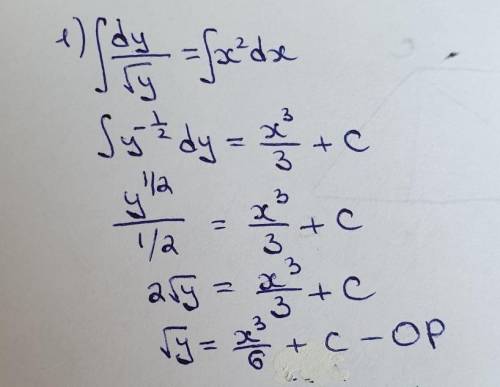 1) ∫ dy/√y = ∫x²dx
∫y^(-1/2) dy = x³/3 + C
y^(1/2)/(1/2) = x³/3 + C
2√y = x³/3 + C
√y = x³/6 + C – ОР